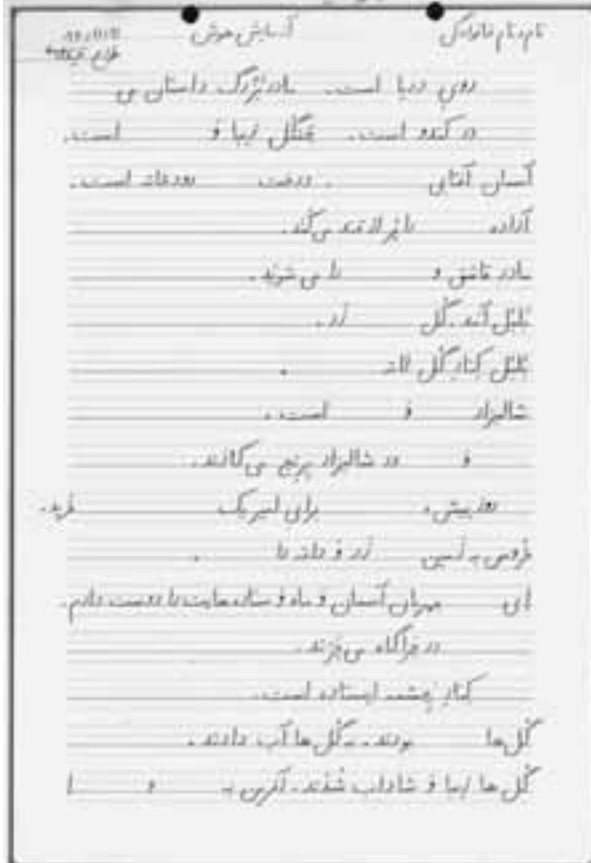 نام و نام خانوادگی آزمایش هوش
روی دریا است. مادربزرگ داستان می
در کندو است. جنگل زیبا و است.
آسمان آفتابی . درخت رودخانه است.
آزاده را می‌کند.
مادر قاشق و را می شوید.
بلبل آمد. گل زد.
بلبل کنار گل لاله .
شالیزار و است.
و در شالیزار برنج می کارند.
روز پیش، برای امیر یک خرید.
خروس به زمین زد و دانه را .
ای مهربان آسمان و ماه و ستاره هایت را دوست دارم.
در چراگاه می چرند.
کنار چشمه ایستاده است.
گل ها بودند. به گل ها آب دادند.
گل ها زیبا و شاداب شدند. آفرین به و